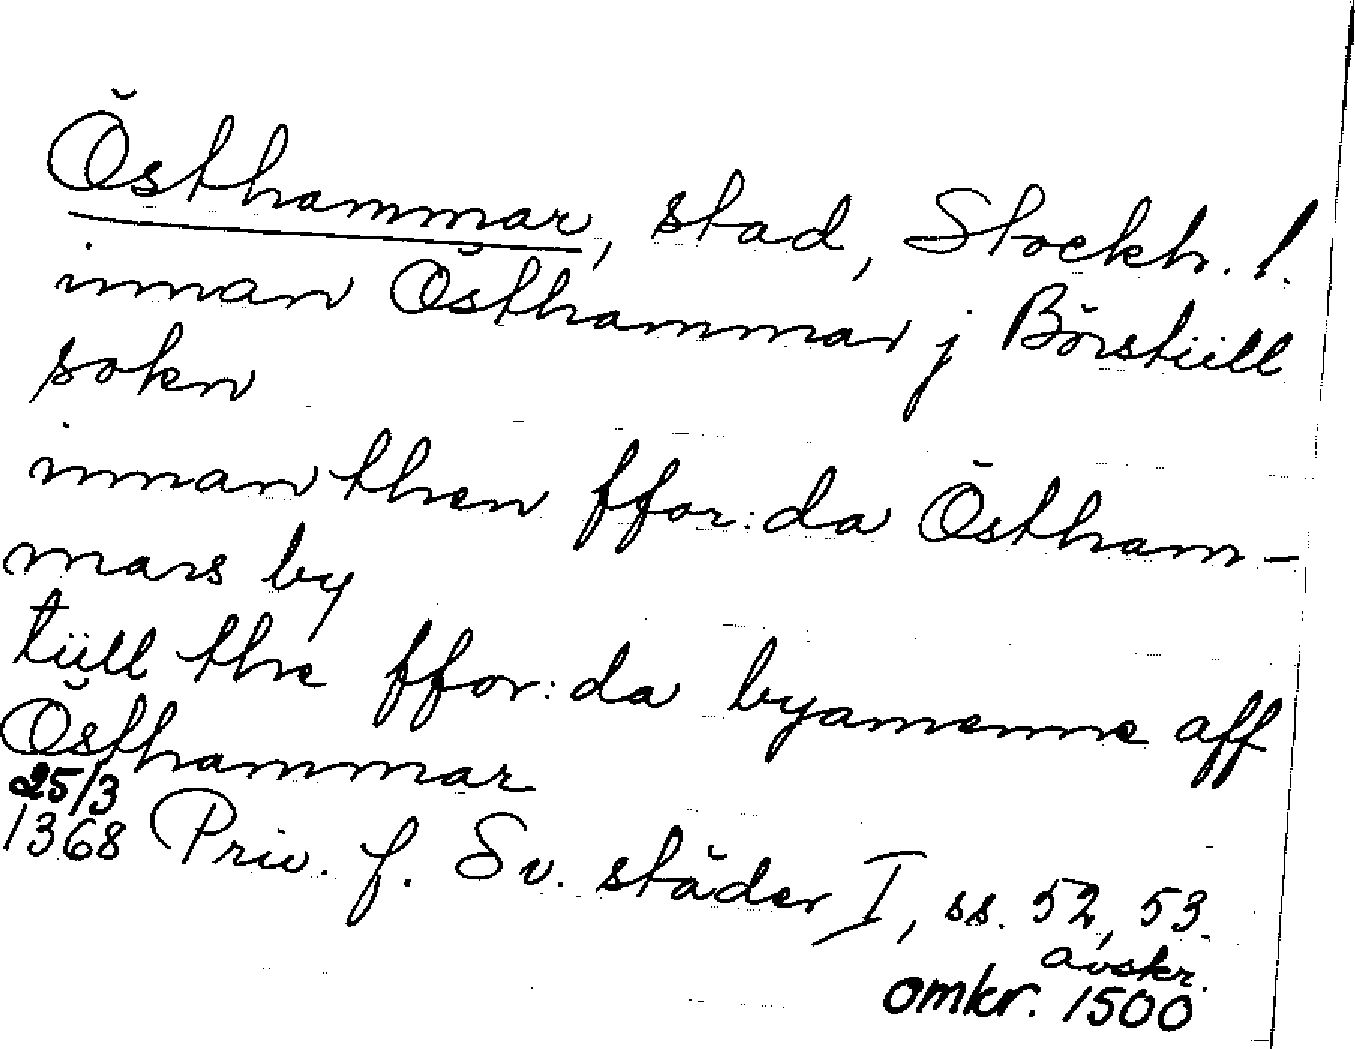 Östhammar, stad, Stockh. l.
innan Östhammar j Börstiill
sokn
innan then ffor:da Östham-
mars by
tiill the ffor:da byamenne aff
Östhammar
25/3
1368 Priv. f. Sv. städer I, ss. 52, 53.
avskr.
omkr. 1500